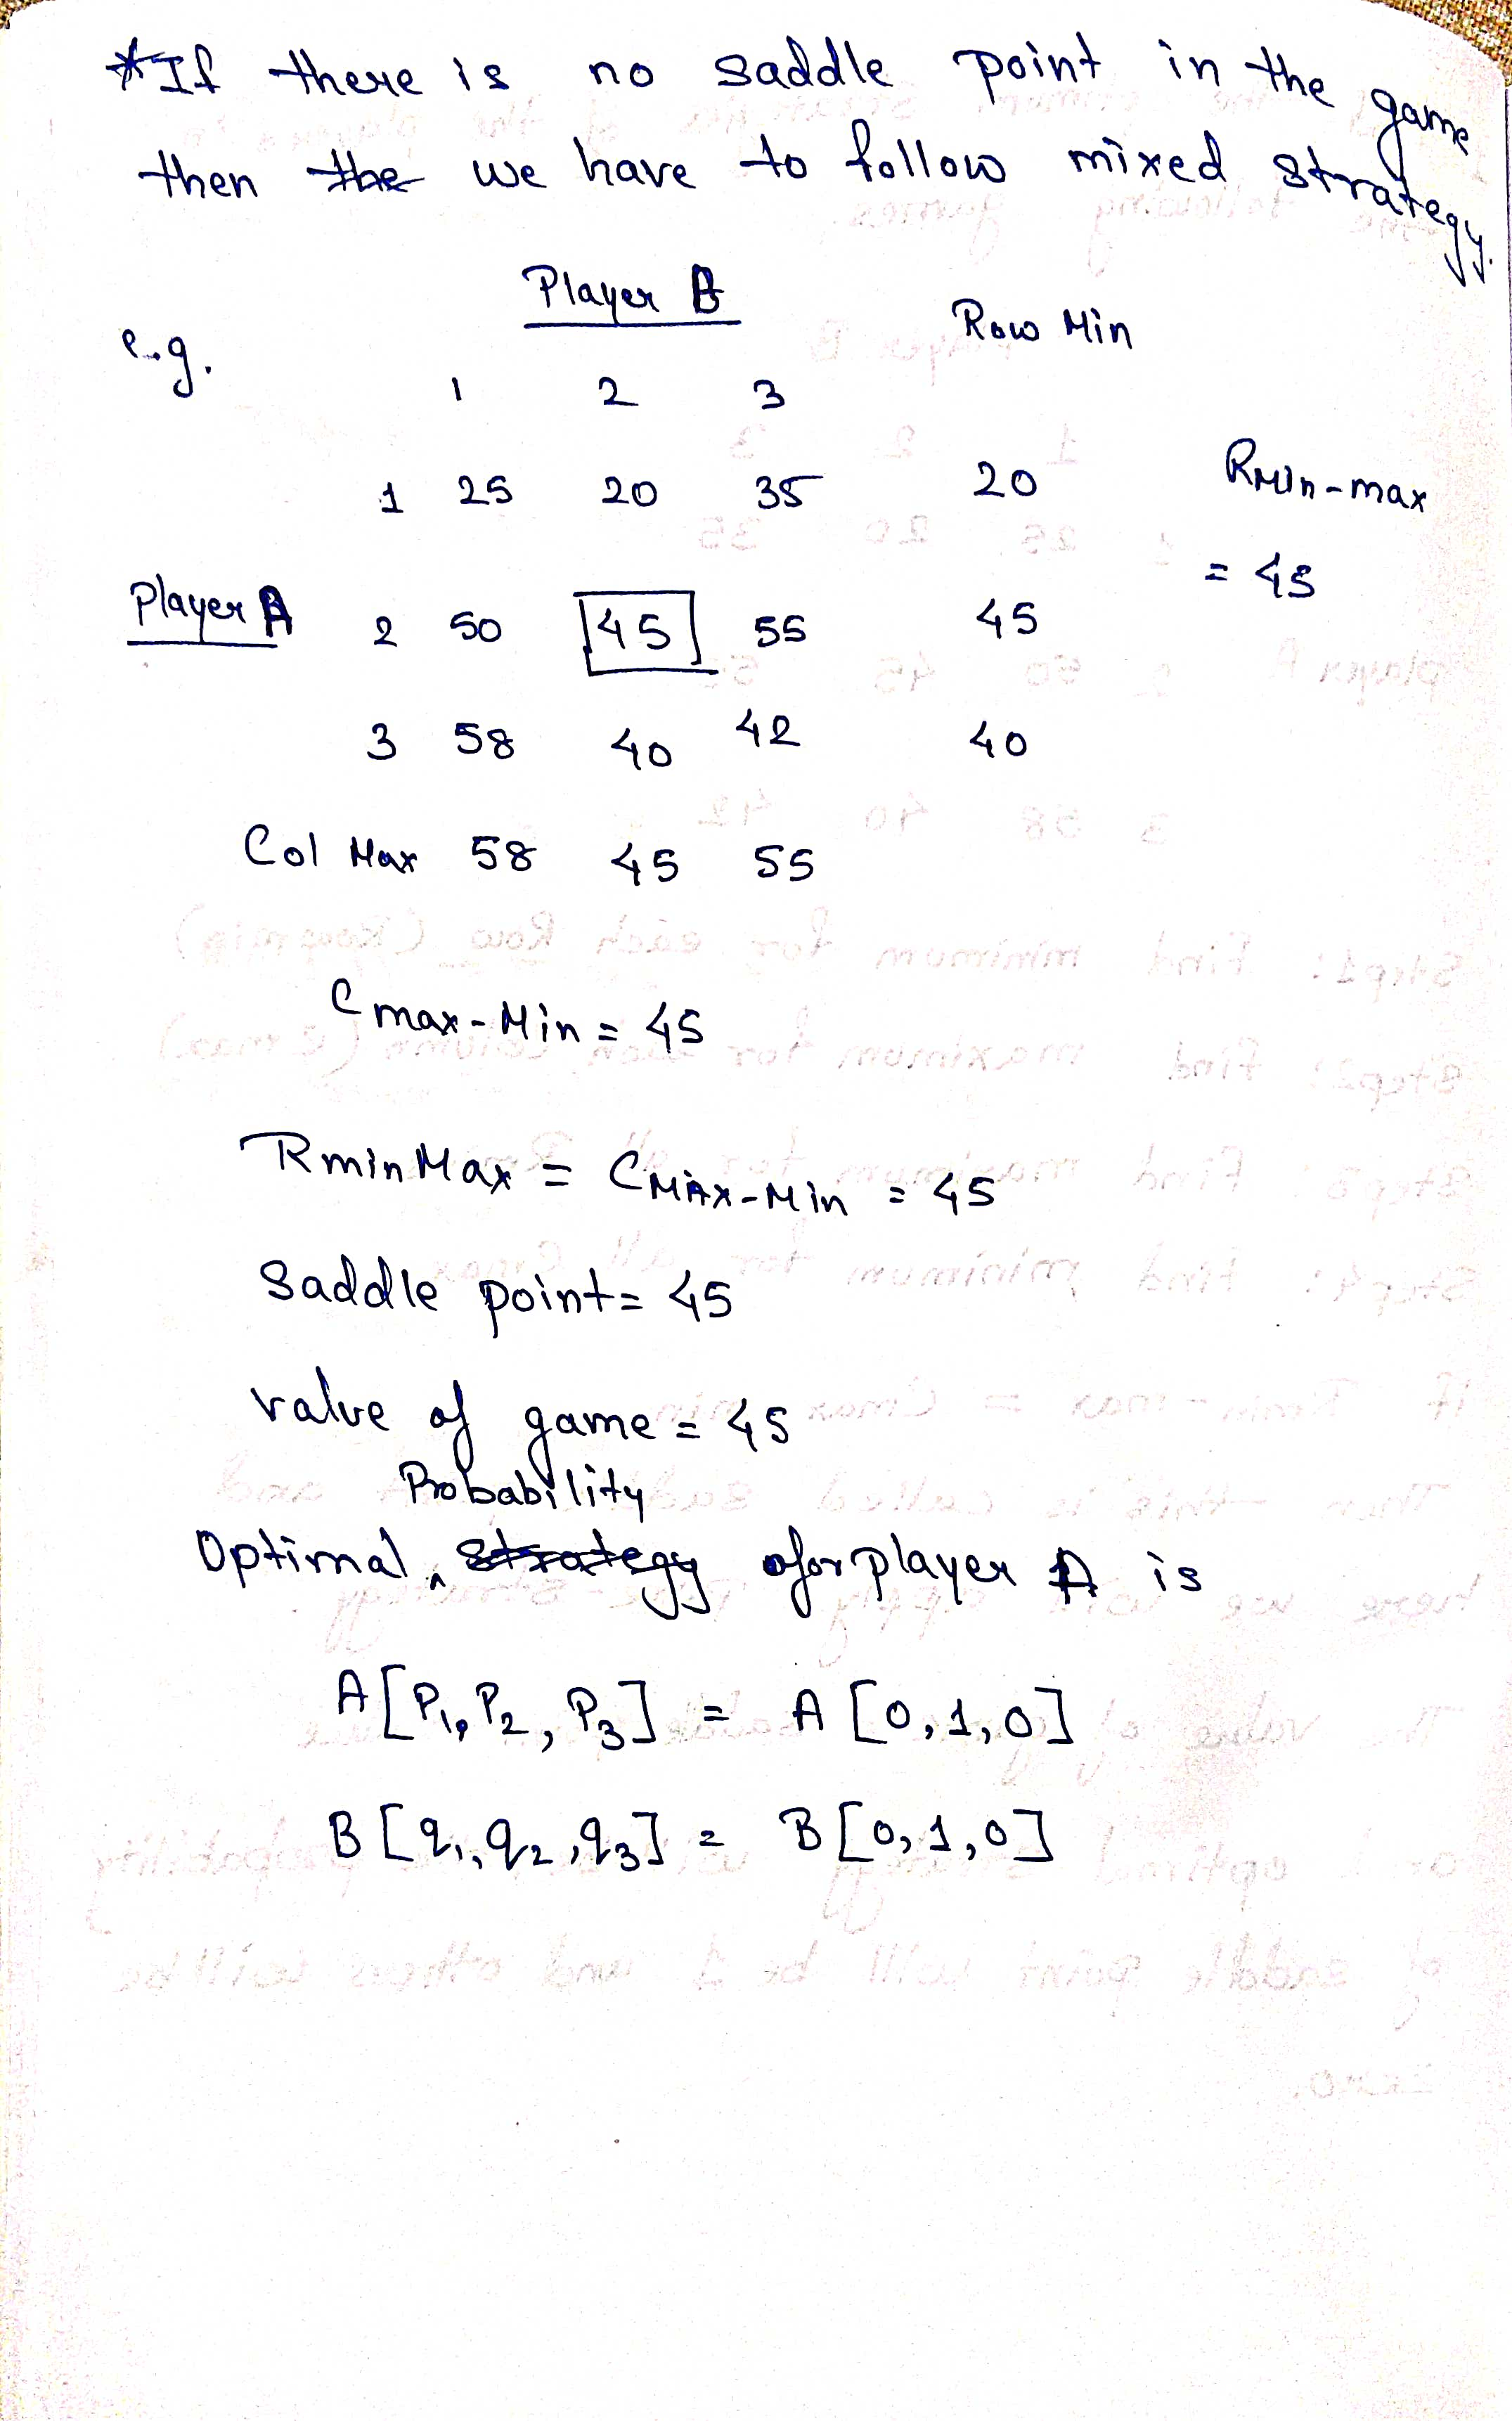 *If there is no saddle point in the game
then the we have to follow mixed strategy.
Player B
Row Min
e.g.
1 2 3
1 25 20 35 20 Rmin-max
= 45
Player A 2 50 45 55 45
3 58 40 42 40
Col Max 58 45 55
Cmax-Min = 45
RminMax = CMAX-Min = 45
Saddle point = 45
value of game = 45
Probability
Optimal strategy for player A is
A[P1, P2, P3] = A[0,1,0]
B[q1, q2, q3] = B[0,1,0]